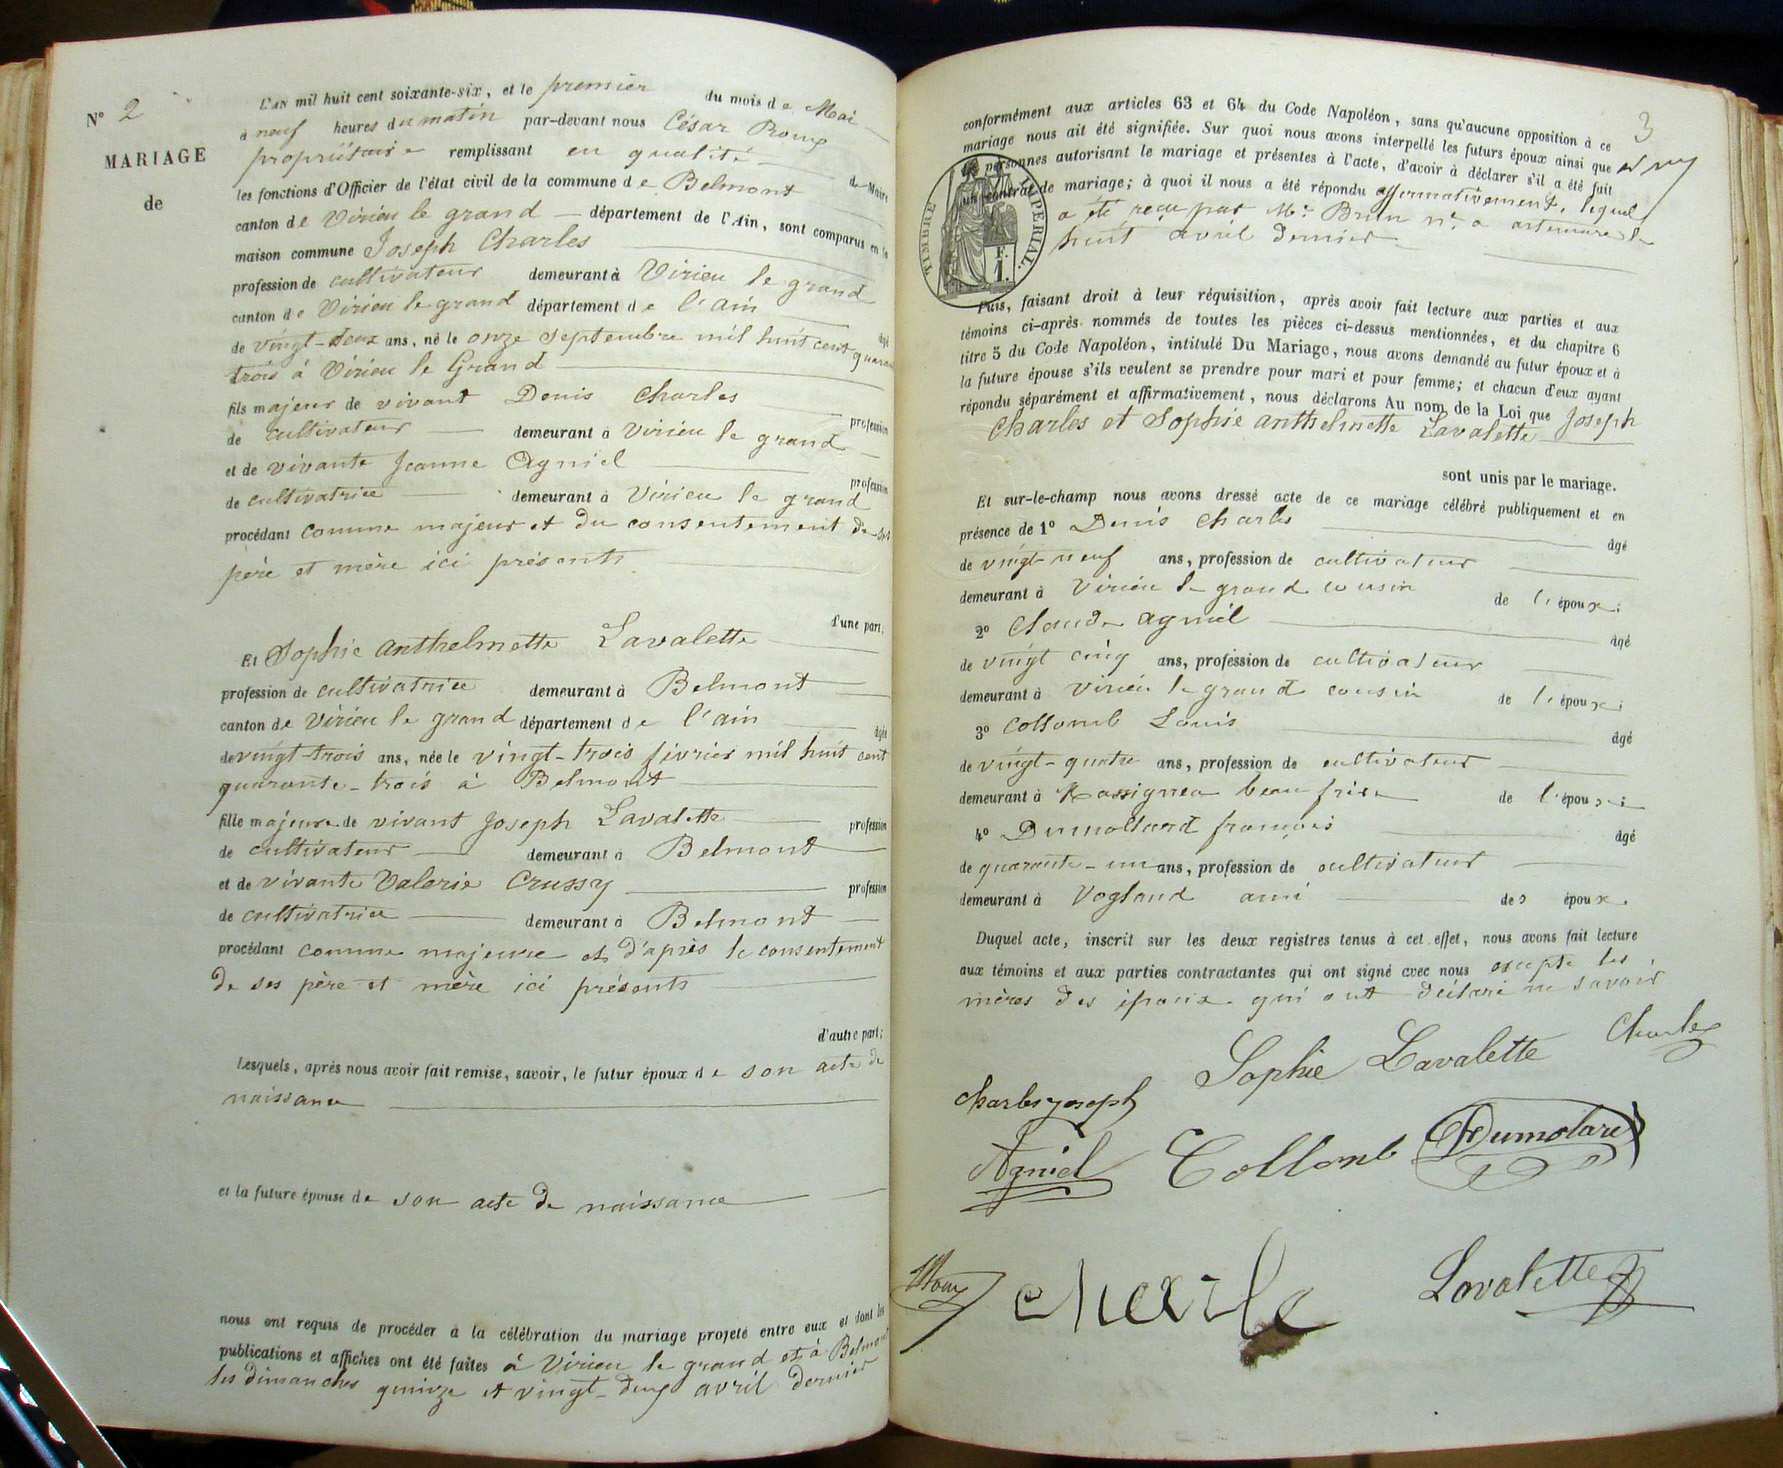 N° 2
MARIAGE
de
L'AN mil huit cent soixante-six, et le premier du mois de Mai
à neuf heures du matin par-devant nous César Roux
propriétaire remplissant en qualité de Maire
les fonctions d'Officier de l'état civil de la commune de Belmont
canton de Virieu le grand département de l'Ain, sont comparus en la
maison commune Joseph Charles
profession de cultivateur demeurant à Virieu le grand
canton de Virieu le grand département de l'ain âgé
de vingt-deux ans, né le onze Septembre mil huit cent quarante
trois à Virieu le Grand
fils majeur de vivant Denis Charles profession
de cultivateur demeurant à Virieu le grand
et de vivante Jeanne Agniel profession
de cultivatrice demeurant à Virieu le grand
procédant comme majeur et du consentement de ses
père et mère ici présents
d'une part;
Et Sophie Anthelmette Lavalette
profession de cultivatrice demeurant à Belmont
canton de Virieu le grand département de l'ain âgée
de vingt-trois ans, née le vingt-trois février mil huit cent
quarante-trois à Belmont
fille majeure de vivant Joseph Lavalette profession
de cultivateur demeurant à Belmont
et de vivante Valerie Crussy profession
de cultivatrice demeurant à Belmont
procédant comme majeure et d'après le consentement
de ses père et mère ici présents
d'autre part;
Lesquels, après nous avoir fait remise, savoir, le futur époux de son acte de
naissance
et la future épouse de son acte de naissance
nous ont requis de procéder à la célébration du mariage projeté entre eux et dont les
publications et affiches ont été faites à Virieu le grand et à Belmont
les dimanches quinze et vingt-deux avril dernier
3
conformément aux articles 63 et 64 du Code Napoléon, sans qu'aucune opposition à ce
mariage nous ait été signifiée. Sur quoi nous avons interpellé les futurs époux ainsi que
les personnes autorisant le mariage et présentes à l'acte, d'avoir à déclarer s'il a été fait
un contrat de mariage; à quoi il nous a été répondu affirmativement, lequel
a été reçu par Me Brun nre à artemare le
huit avril dernier
TIMBRE IMPERIAL.
F.
1.
Puis, faisant droit à leur réquisition, après avoir fait lecture aux parties et aux
témoins ci-après nommés de toutes les pièces ci-dessus mentionnées, et du chapitre 6
titre 5 du Code Napoléon, intitulé Du Mariage, nous avons demandé au futur époux et à
la future épouse s'ils veulent se prendre pour mari et pour femme; et chacun d'eux ayant
répondu séparément et affirmativement, nous déclarons Au nom de la Loi que Joseph
Charles et Sophie anthelmette Lavalette
sont unis par le mariage.
Et sur-le-champ nous avons dressé acte de ce mariage célébré publiquement et en
présence de 1° Denis Charles âgé
de vingt-neuf ans, profession de cultivateur
demeurant à Virieu le grand cousin de l'époux;
2° Claude Agniel âgé
de vingt cinq ans, profession de cultivateur
demeurant à Virieu le grand cousin de l'époux;
3° Collomb Louis âgé
de vingt-quatre ans, profession de cultivateur
demeurant à Rossignea beau frère de l'époux;
4° Dumolland françois âgé
de quarante-un ans, profession de cultivateur
demeurant à Vogland ami des époux.
Duquel acte, inscrit sur les deux registres tenus à cet effet, nous avons fait lecture
aux témoins et aux parties contractantes qui ont signé avec nous excepté les
mères des époux qui ont déclaré ne savoir
Sophie Lavalette Charles
Charles joseph
Agniel Collomb Dumolard
Roux Charle Lavalette